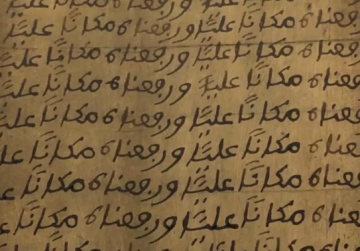 ورفعناه مكانًا عليًّا ورفعناه مكانًا عليًّا
ورفعناه مكانًا عليًّا ورفعناه مكانًا عليًّا
ورفعناه مكانًا عليًّا ورفعناه مكانًا عليًّا
ورفعناه مكانًا عليًّا ورفعناه مكانًا عليًّا
ورفعناه مكانًا عليًّا ورفعناه مكانًا عليًّا
ورفعناه مكانًا عليًّا ورفعناه مكانًا عليًّا
ورفعناه مكانًا عليًّا ورفعناه مكانًا عليًّا
ورفعناه مكانًا عليًّا ورفعناه مكانًا عليًّا